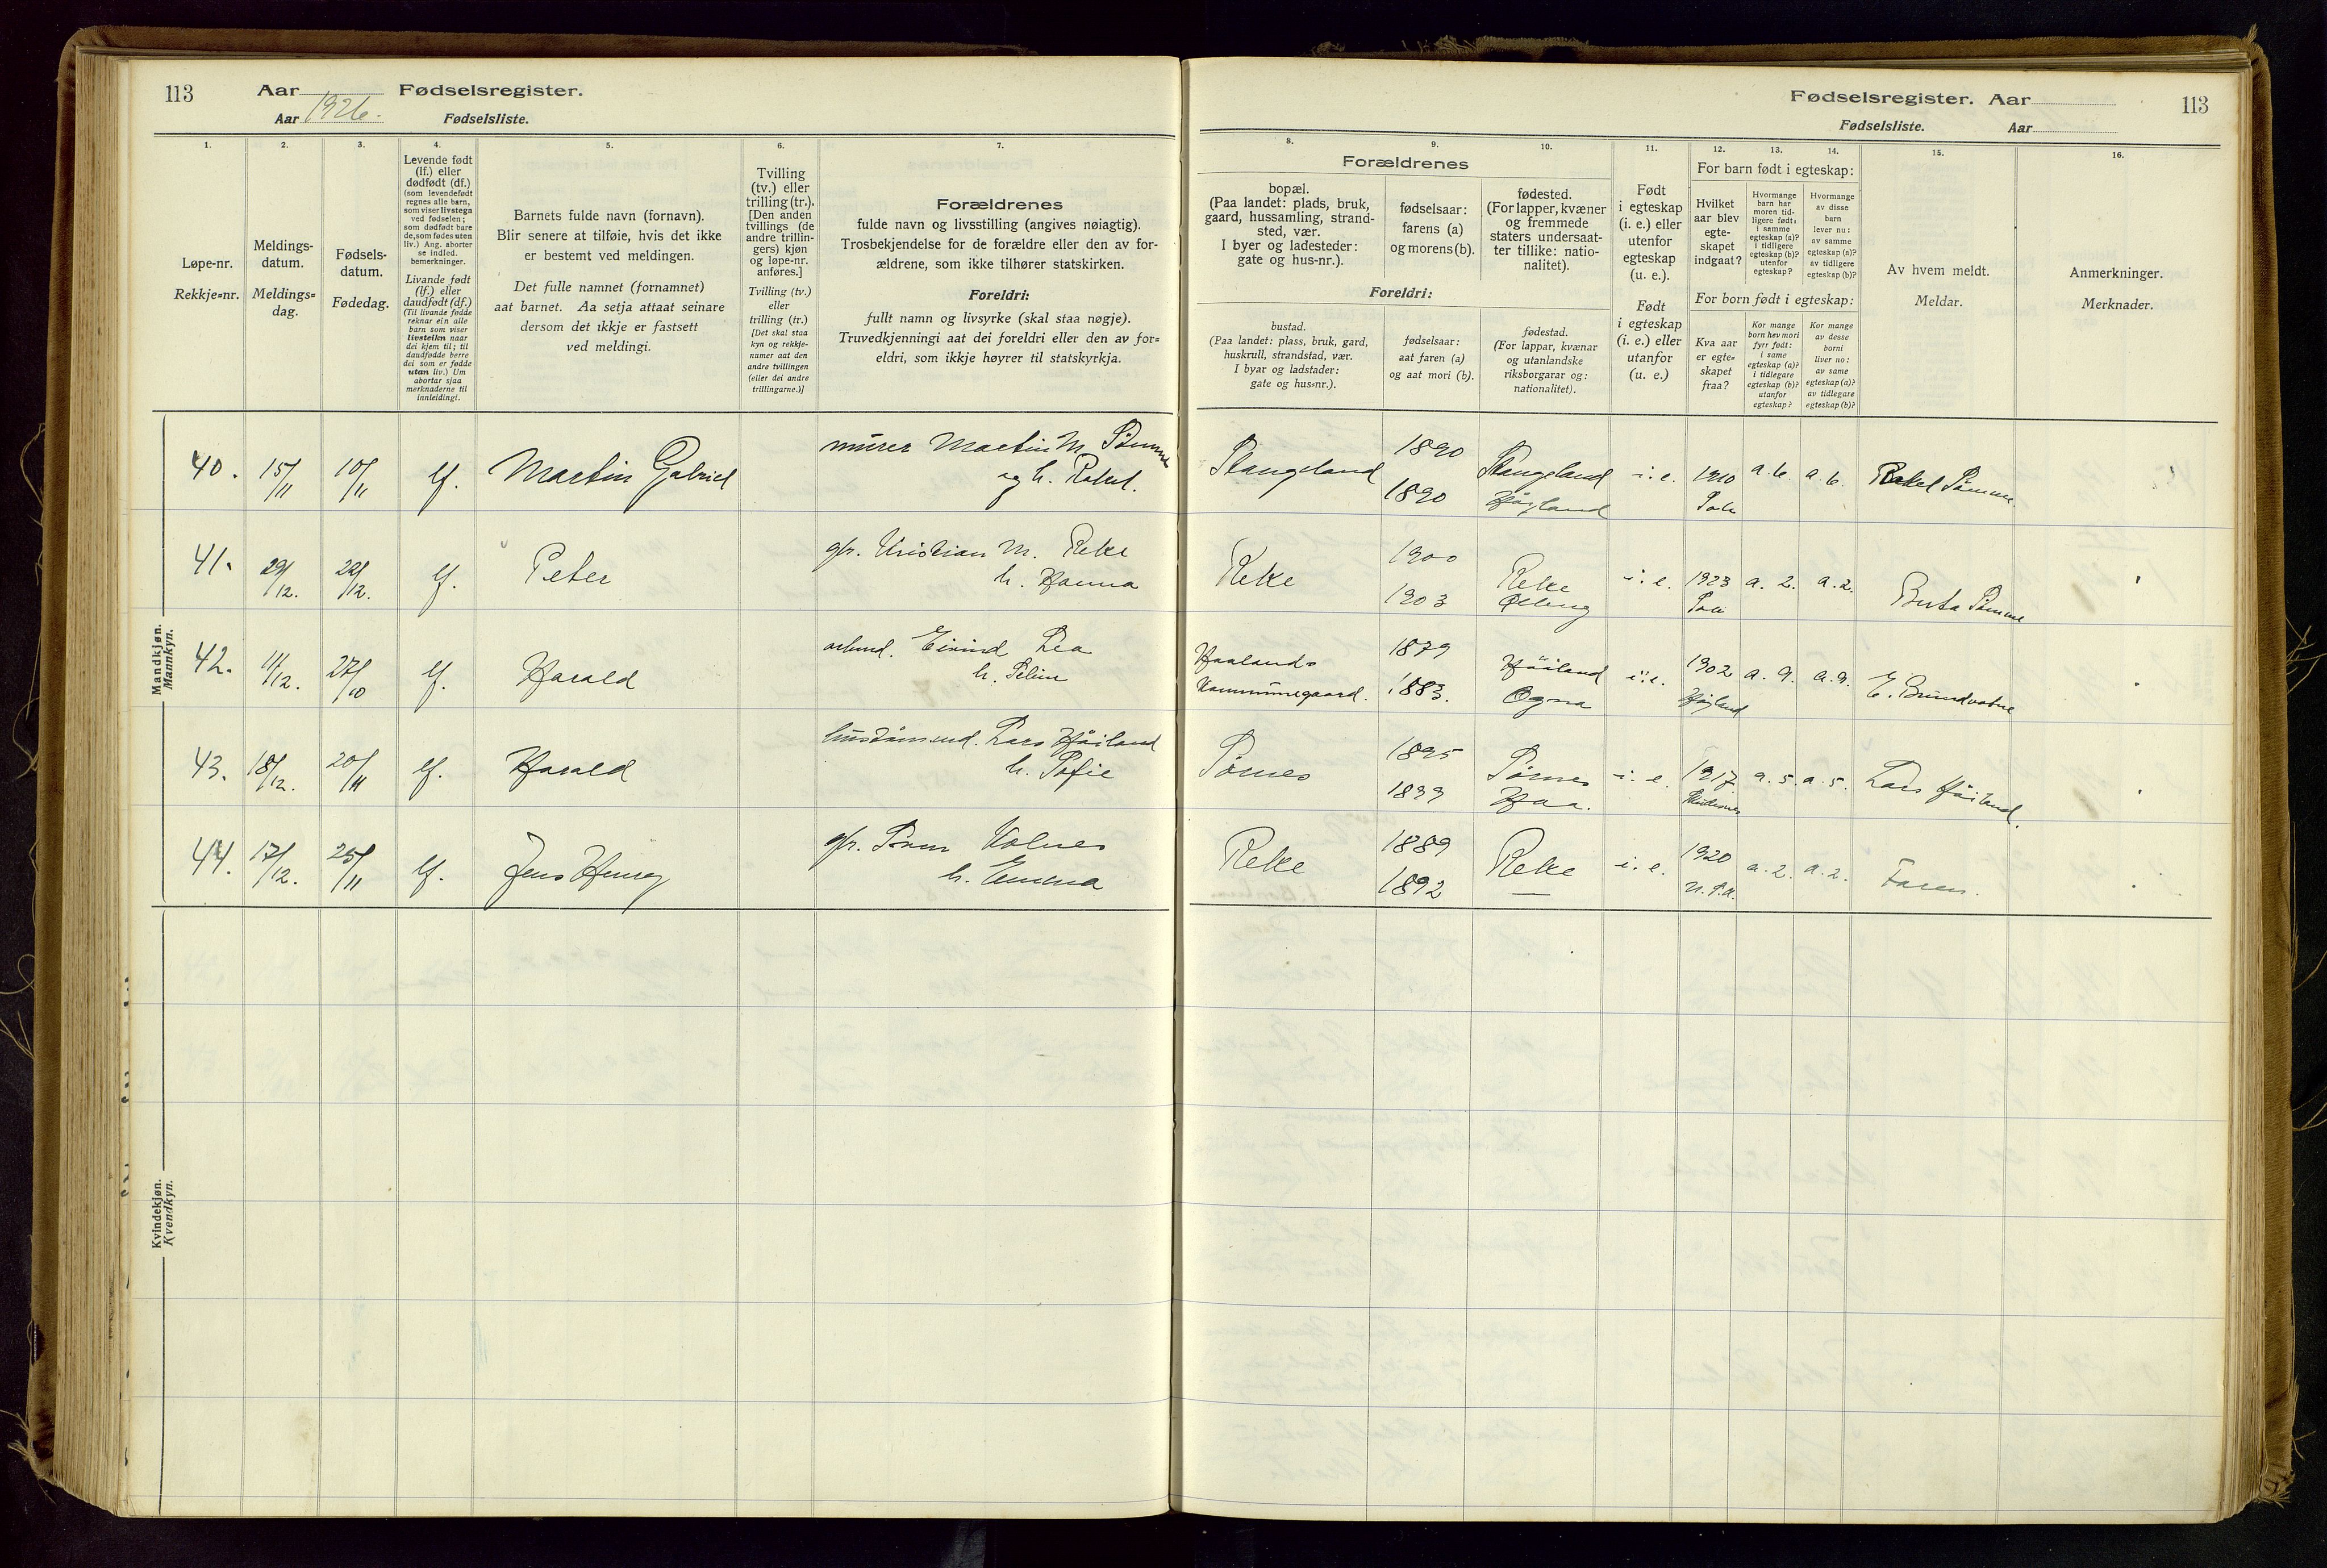 113
Aar 1926. Fødselsregister.
Aar Fødselsliste.
1.
Løpe-nr.
Rekkje=nr.
2.
Meldings-
datum.
Meldings=
dag.
3.
Fødsels-
datum.
Fødedag.
4.
Levende født
(lf.) eller
dødfødt (df.)
(som levendefødt
regnes alle barn,
som viser livstegn
ved fødselen;
som dødfødt bare
de, som fødes uten
liv.) Ang. aborter
se indled.
bemerkninger.
Livande født
(lf.) eller
daudfødt (df.)
(Til livande fødde
reknar ein alle
barn som viser
livsteikn naar
dei kjem til; til
daudfødde berre
dei som er fødde
utan liv.) Um
abortar sjaa
merknaderne til
innleidingi.
5.
Barnets fulde navn (fornavn).
Blir senere at tilføie, hvis det ikke
er bestemt ved meldingen.
Det fulle namnet (fornamnet)
aat barnet. Aa setja attaat seinare
dersom det ikkje er fastsett
ved meldingi.
6.
Tvilling
(tv.) eller
trilling (tr.).
[Den anden
tvillings (de
andre trillin-
gers) kjøn
og løpe-nr.
anføres.]
Tvilling (tv.)
eller
trilling (tr.)
[Det skal staa
kyn og rekkje-
numer aat den
andre tvillingen
(eller dei andre
trillingarne.)]
7.
Forældrenes
fulde navn og livsstilling (angives nøiagtig).
Trosbekjendelse for de forældre eller den av for-
ældrene, som ikke tilhører statskirken.
Foreldri:
fullt namn og livsyrke (skal staa nøgje).
Truvedkjenningi aat dei foreldri eller den av for=
eldri, som ikkje høyrer til statskyrkja.
Mandkjøn.
Mannkyn.
40. 15/11 10/11 lf. Martin Gabriel murer Martin M. Sømme
og h. Rakel.
41. 29/12. 22/12. lf. Peter gbr. Kristian M. Reke
h. Hanna
42. 11/12. 27/10 lf. Harald arbmd. Eivind Lea
h. Seline
43. 18/12. 20/11 lf. Harald Lars Håiland
h. Sofie
44. 17/12. 25/11 lf. Jens Henry gbr. Kolnes
h. Emma
Kvindekjøn.
Kvendkyn.
Fødselsregister. Aar
113
Fødselsliste. Aar
8.
Forældrenes
bopæl.
(Paa landet: plads, bruk,
gaard, hussamling, strand-
sted, vær.
I byer og ladesteder:
gate og hus-nr.).
Foreldri:
bustad.
(Paa landet: plass, bruk, gard,
huskrull, strandstad, vær.
I byar og ladstader:
gate og hus=nr.).
9.
fødselsaar:
farens (a)
og morens (b).
fødselsaar:
aat faren (a)
og aat mori (b).
10.
fødested.
(For lapper, kvæner
og fremmede
staters undersaat-
ter tillike: natio-
nalitet).
fødestad.
(For lappar, kvænar
og utanlandske
riksborgarar og:
nationalitet).
11.
Født
i egteskap
(i. e.) eller
utenfor
egteskap
(u. e.).
Født
i egteskap
(i. e.) eller
utanfor
(u. e.)
12. 13. 14.
For barn født i egteskap:
Hvilket
aar blev
egte-
skapet
indgaat?
Hvormange
barn har
moren tid-
ligere født:
i samme
egteskap (a)?
i tidligere
egteskap (b)?
utenfor
egteskap?
Hvormange
av disse
barn
lever nu:
av samme
egteskap (a)?
av tidligere
egteskap (b)?
For born født i egteskap:
Kva aar
er egte=
skapet
fraa?
Kor mange
born hev mori
fyrr født:
i same
egteskap (a)?
i tidlegare
egteskap (b)?
utanfor
egteskap?
Kor mange
av desse
borni
liver no:
av same
egteskap (a)?
av tidlegare
egteskap (b)?
15.
Av hvem meldt.
Meldar.
16.
Anmerkninger.
Merknader.
Stangeland 1890 Stangeland i. e. 1910 a. 6. a. 6. Rakel Sømme.
1890 Høyland Sola
Reke 1900 Reke i. e. 1923 a. 2. a. 2. Berta Sømme
1903 Ølberg Sola
Haalands 1879 Håiland i. e. 1902 a. 9. a. 9. E. Brundvatne
Kommunegaard. 1883. Ogna Høyland
Sømes 1895 Sømes i. e. 1917. a. 5. a. 5. Lars Håiland.
1899 Haa. Skudesnes
Reke 1889 Reke i. e. 1920 a. 2. a. 2. Faren.
1892 — U. S. A.